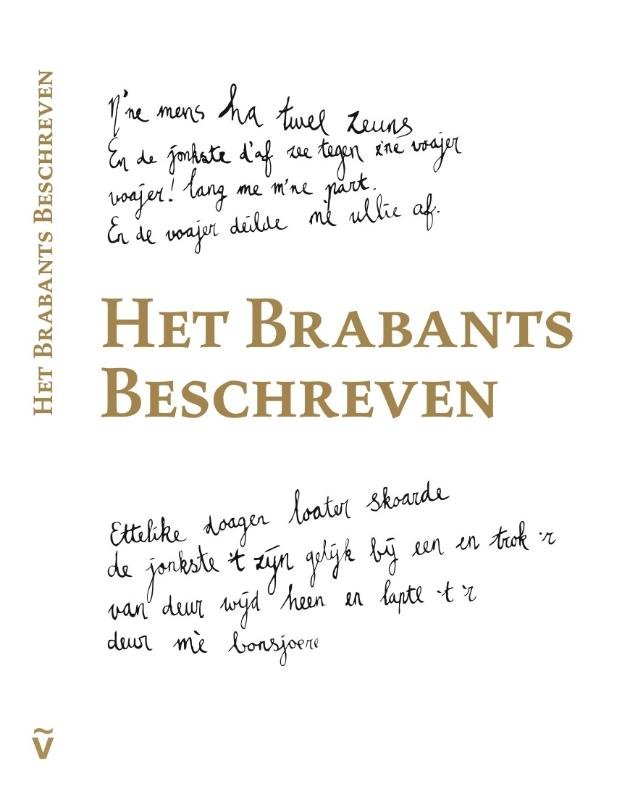 HET BRABANTS BESCHREVEN
N'ne mens ha twel zeuns
En de jonkste d'af zee tegen z'ne voajer
voajer! lang me m'ne part.
En de voajer deilde mè ullie af.
HET BRABANTS
BESCHREVEN
Ettelike doagen loater skoarde
de jonkste 't zijn gelijk bij een en trok 'r
van deur wijd heen en lapte 't 'r
deur mè bonsjoere
ṽ